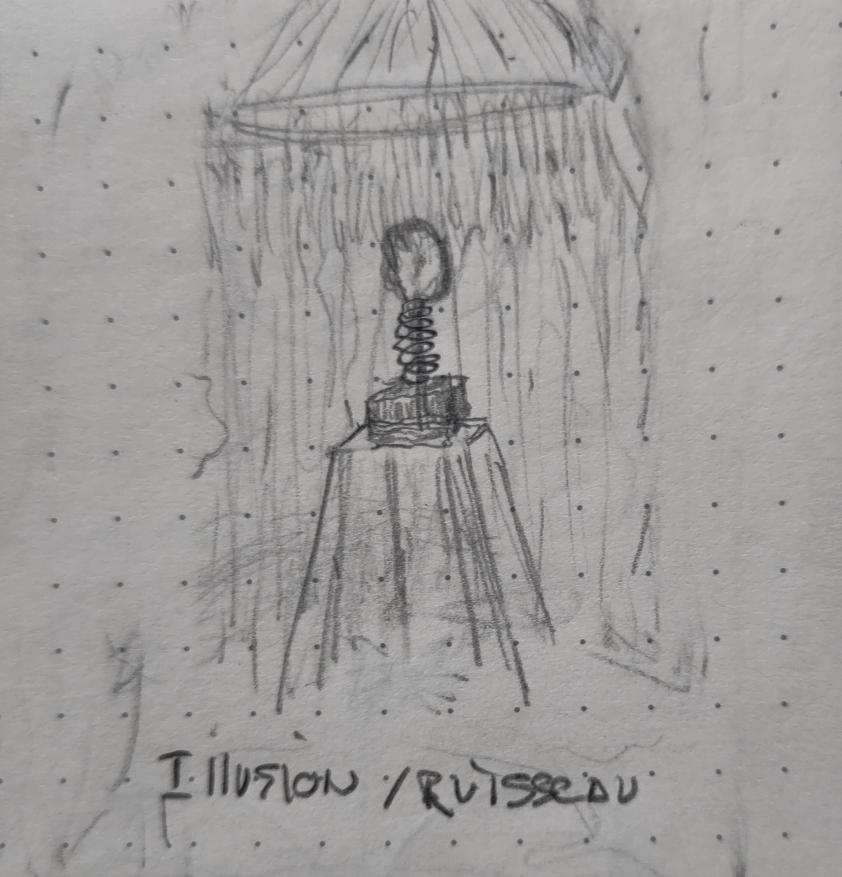 Illusion / Ruisseau